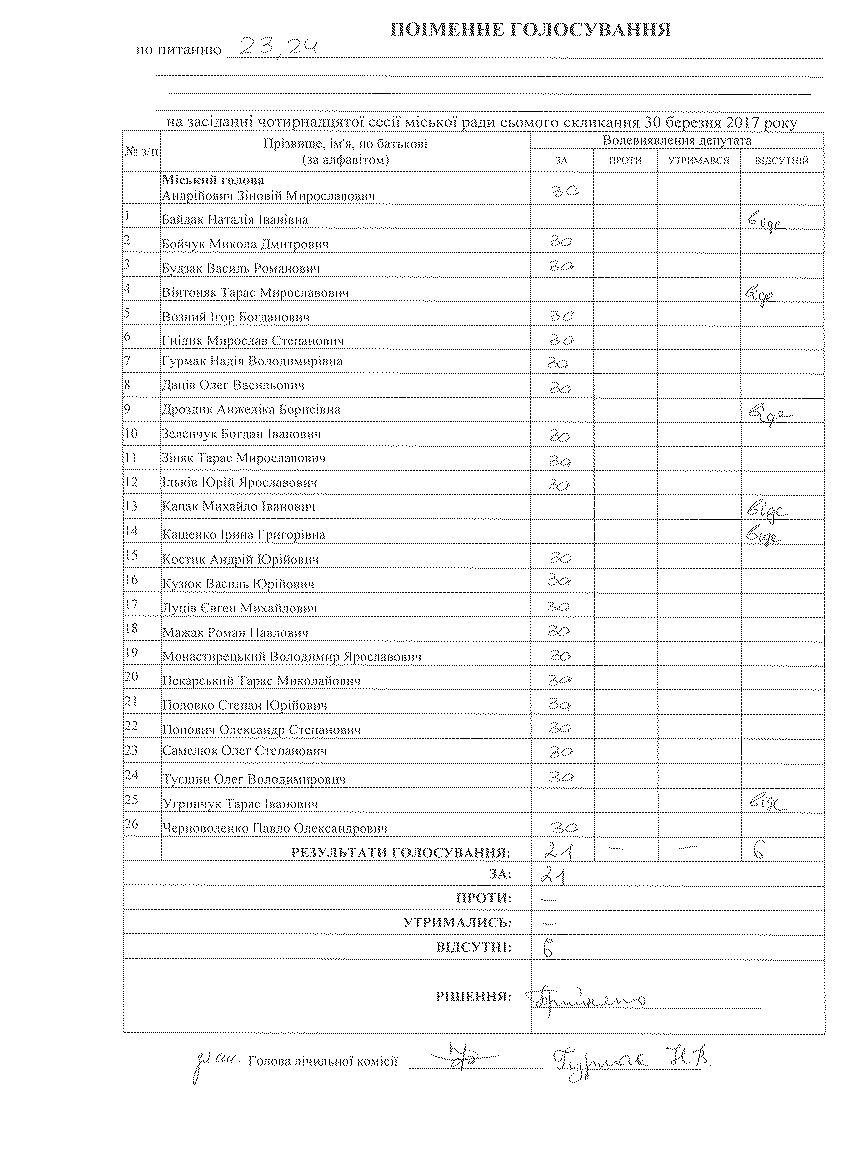 ПОІМЕННЕ ГОЛОСУВАННЯ
по питанню 23, 24
на засіданні чотирнадцятої сесії міської ради сьомого скликання 30 березня 2017 року
№ з/п Прізвище, ім'я, по батькові (за алфавітом) Волевиявлення депутата
ЗА ПРОТИ УТРИМАВСЯ ВІДСУТНІЙ
Міський голова
Андрійович Зіновій Мирославович зо
1 Байдак Наталія Іванівна відс
2 Бойчук Микола Дмитрович зо
3 Будзак Василь Романович зо
4 Візтоняк Тарас Мирославович відс
5 Возний Ігор Богданович зо
6 Гнідик Мирослав Степанович зо
7 Гурмак Надія Володимирівна зо
8 Даців Олег Васильович зо
9 Дроздик Анжеліка Борисівна відс
10 Зеленчук Богдан Іванович зо
11 Зіняк Тарас Мирославович зо
12 Ільків Юрій Ярославович зо
13 Капак Михайло Іванович відс
14 Кащенко Ірина Григорівна відс
15 Костик Андрій Юрійович зо
16 Кузюк Василь Юрійович зо
17 Луців Євген Михайлович зо
18 Мажак Роман Павлович зо
19 Монастирецький Володимир Ярославович зо
20 Пекарський Тарас Миколайович зо
21 Половко Степан Юрійович зо
22 Попович Олександр Степанович зо
23 Самелюк Олег Степанович зо
24 Тусшин Олег Володимирович зо
25 Угринчук Тарас Іванович відс
26 Черноволенко Павло Олександрович зо
РЕЗУЛЬТАТИ ГОЛОСУВАННЯ: 21 – – 6
ЗА: 21
ПРОТИ: –
УТРИМАЛИСЬ: –
ВІДСУТНІ: 6
РІШЕННЯ: Прийнято
Голова лічильної комісії Гурмак Н.В.